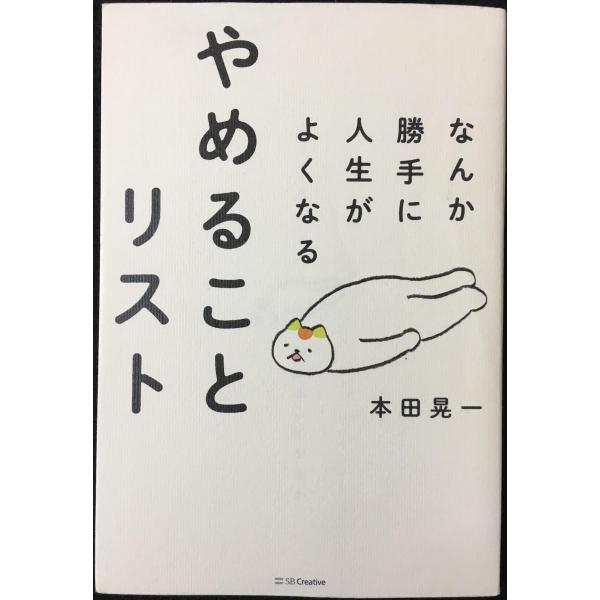 なんか
勝手に
人生が
よくなる
やめること
リスト
本田晃一
SB Creative